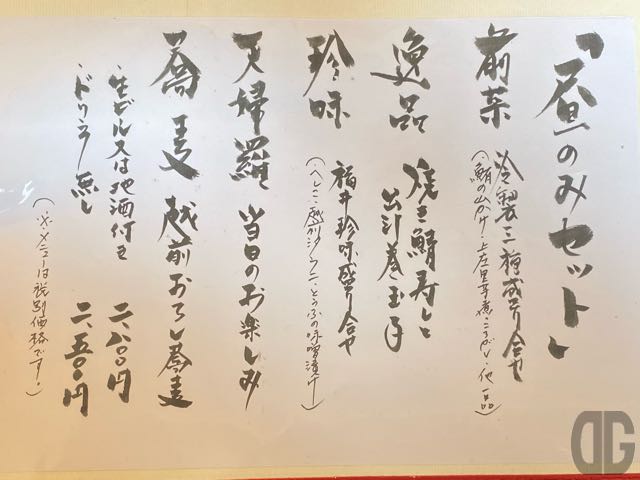 「昼のみセット」
前菜 冷製三種盛り合せ
(・鮪の山かけ・上庄里芋煮・こうがい・他一品)
逸品 焼き鯖寿しと
出汁巻き玉子
珍味 福井珍味盛り合せ
(へしこ・越前 ・とうふの味噌漬け)
天婦羅 当日のお楽しみ
蕎麦 越前おろし蕎麦
・生ビール又は地酒付き 二、八〇〇円
・ドリンク無し 二、五〇〇円
(※メニューは税別価格です。)
DG